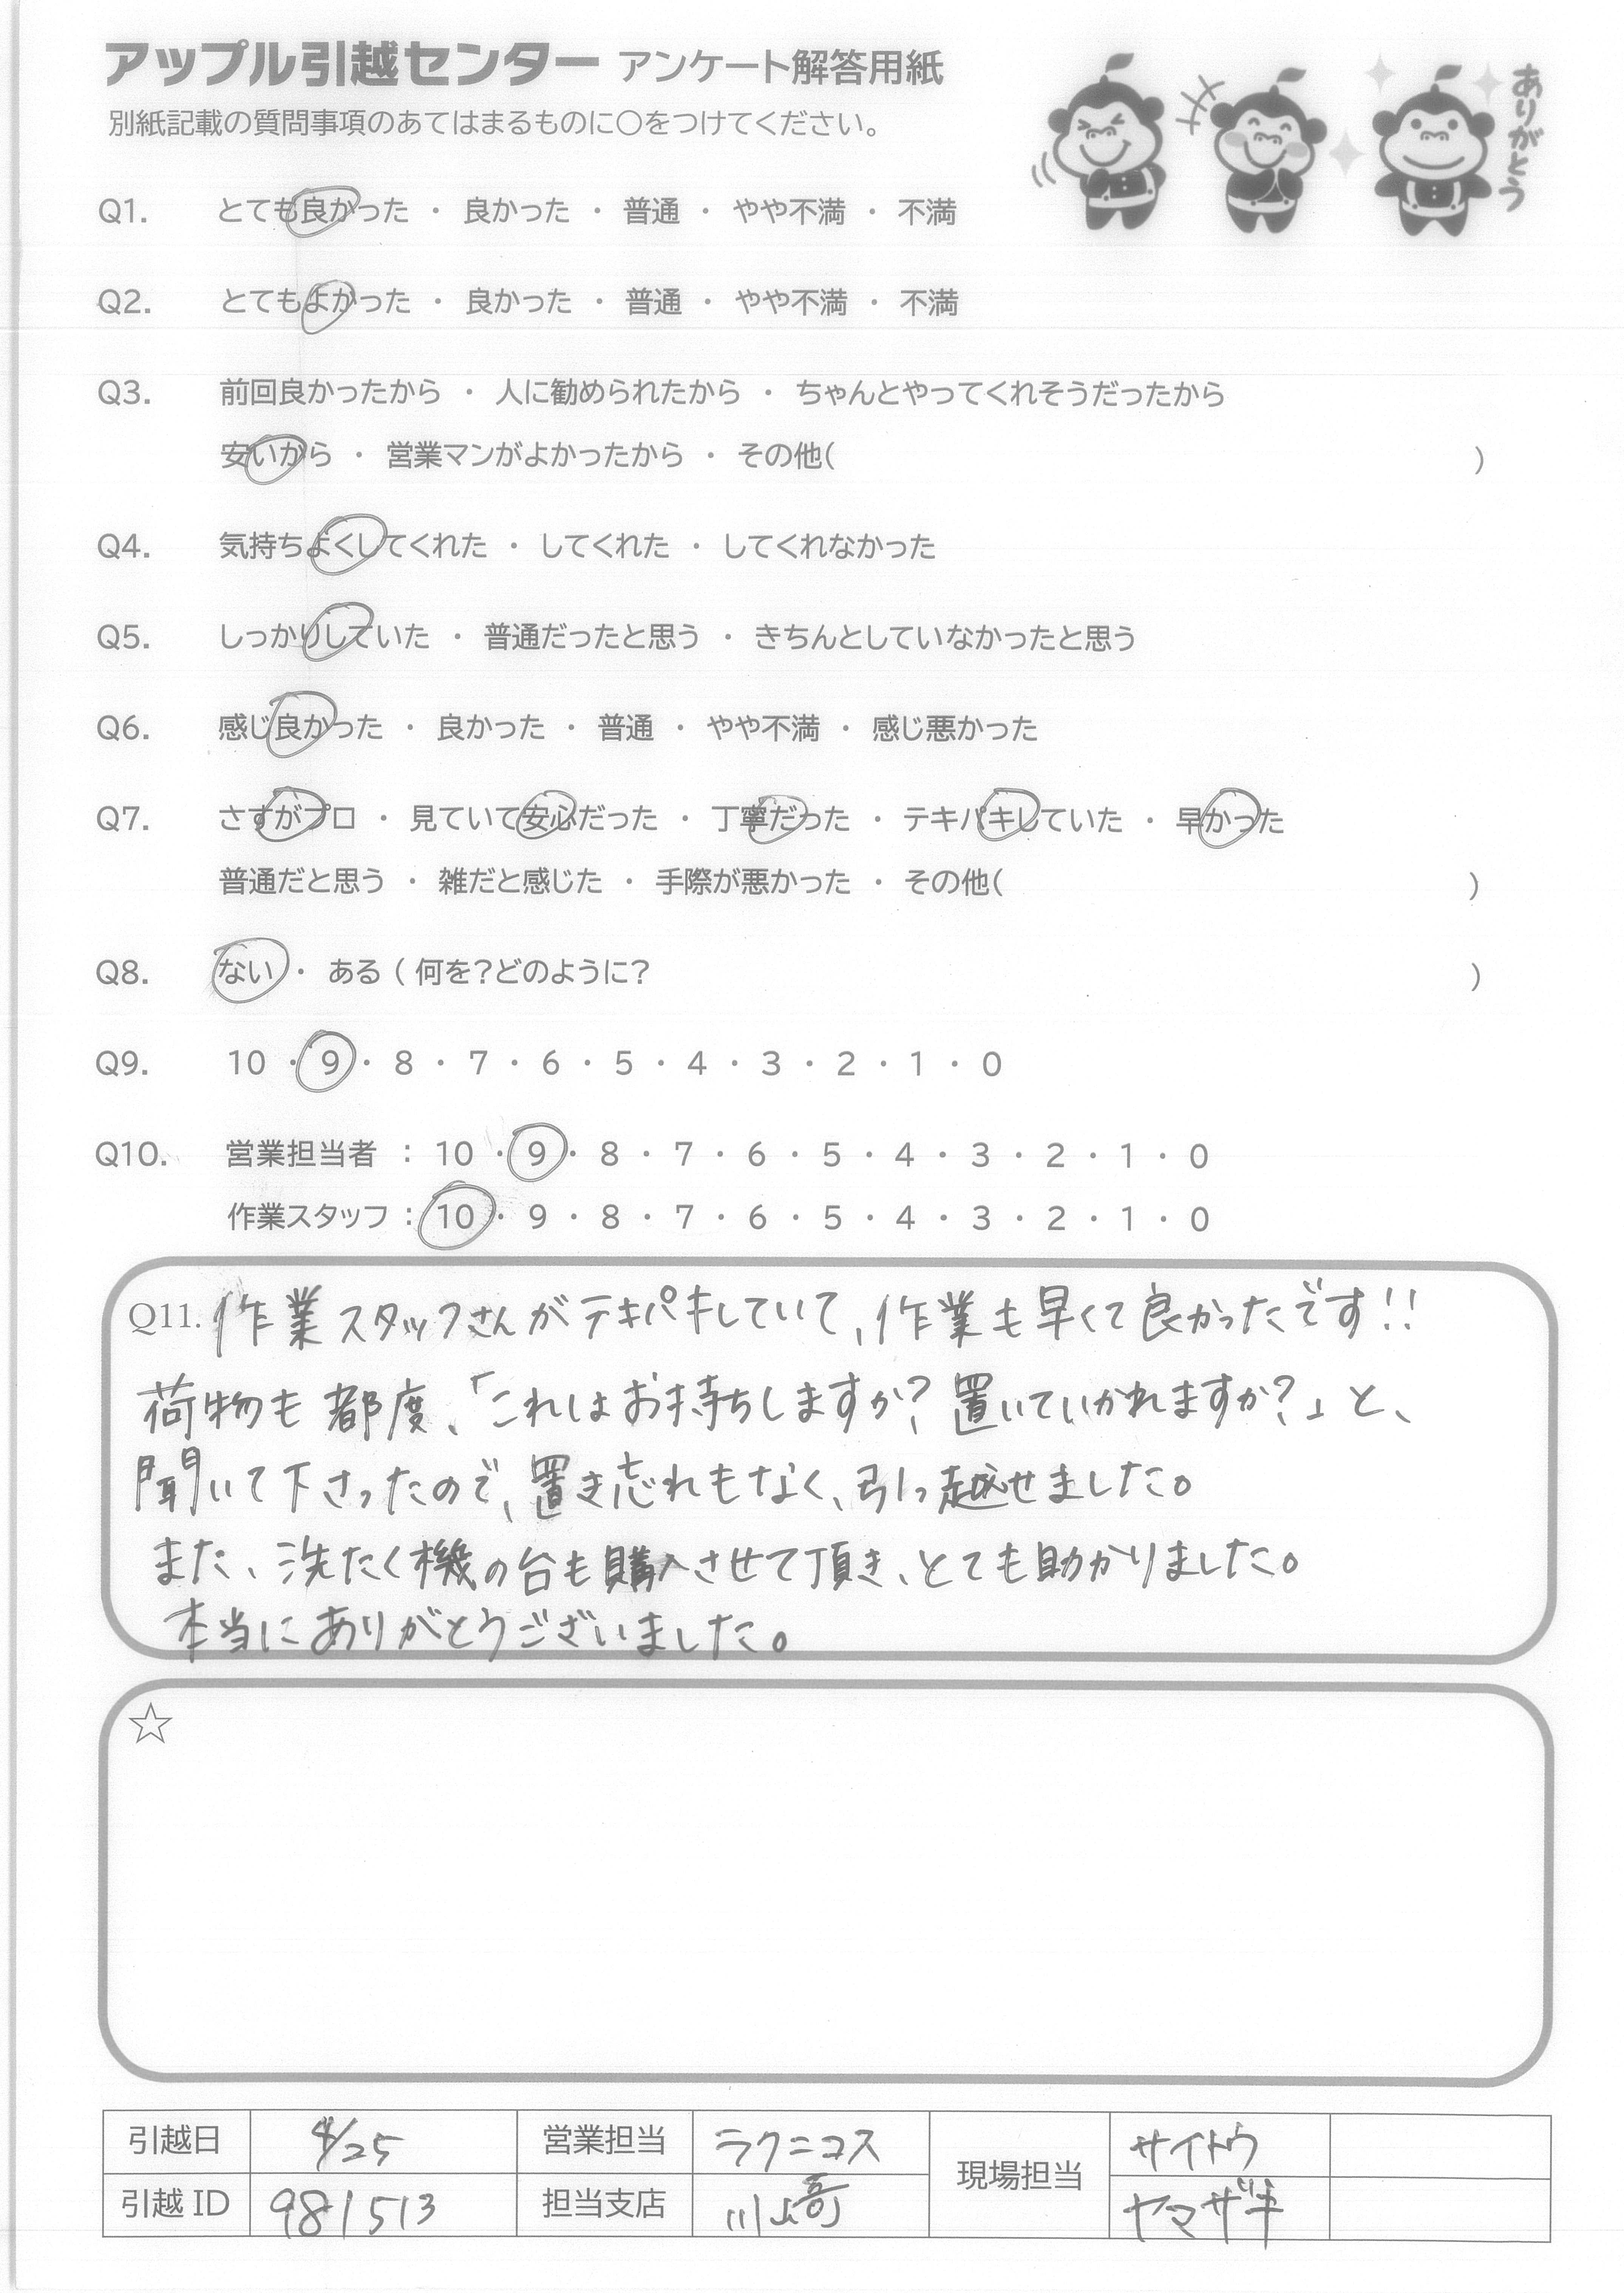 アップル引越センター アンケート解答用紙
別紙記載の質問事項のあてはまるものに〇をつけてください。
ありがとう
Q1. とても良かった ・ 良かった ・ 普通 ・ やや不満 ・ 不満
Q2. とてもよかった ・ 良かった ・ 普通 ・ やや不満 ・ 不満
Q3. 前回良かったから ・ 人に勧められたから ・ ちゃんとやってくれそうだったから
安いから ・ 営業マンがよかったから ・ その他( )
Q4. 気持ちよくしてくれた ・ してくれた ・ してくれなかった
Q5. しっかりしていた ・ 普通だったと思う ・ きちんとしていなかったと思う
Q6. 感じ良かった ・ 良かった ・ 普通 ・ やや不満 ・ 感じ悪かった
Q7. さすがプロ ・ 見ていて安心だった ・ 丁寧だった ・ テキパキしていた ・ 早かった
普通だと思う ・ 雑だと感じた ・ 手際が悪かった ・ その他( )
Q8. ない ・ ある ( 何を?どのように? )
Q9. 10 ・ 9 ・ 8 ・ 7 ・ 6 ・ 5 ・ 4 ・ 3 ・ 2 ・ 1 ・ 0
Q10. 営業担当者 : 10 ・ 9 ・ 8 ・ 7 ・ 6 ・ 5 ・ 4 ・ 3 ・ 2 ・ 1 ・ 0
作業スタッフ : 10 ・ 9 ・ 8 ・ 7 ・ 6 ・ 5 ・ 4 ・ 3 ・ 2 ・ 1 ・ 0
Q11. 作業スタッフさんがテキパキしていて、作業も早くて良かったです!!
荷物も都度、「これはお持ちしますか? 置いていかれますか?」と、
聞いて下さったので、置き忘れもなく、引っ越せました。
また、洗たく機の台も購入させて頂き、とても助かりました。
本当にありがとうございました。
☆
引越日 4/25 営業担当 ラクニコス 現場担当 サイトウ
引越 ID 981513 担当支店 川崎 ヤマザキ